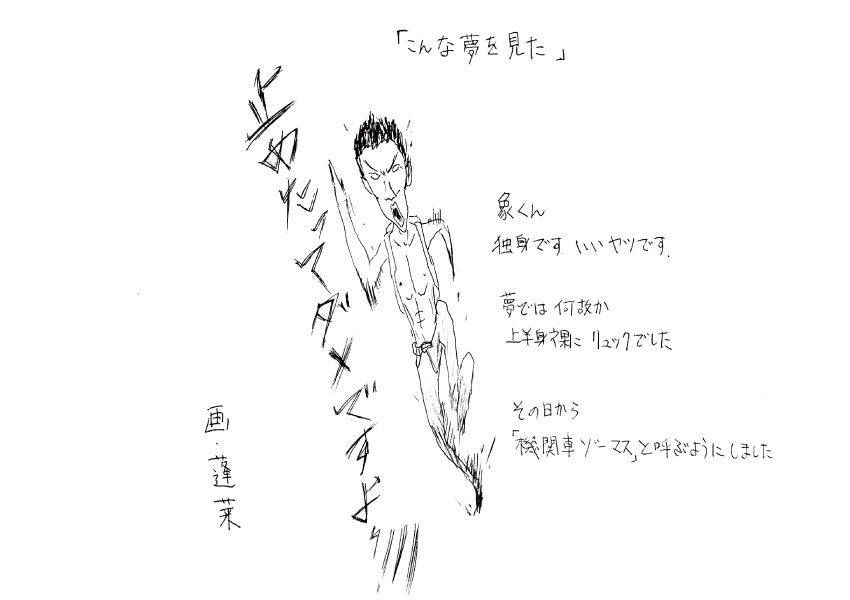 「こんな夢を見た」
止めたってダメですよ〃
象くん
独身です いいヤツです.
夢では 何故か
上半身裸に リュックでした
その日から
「機関車ゾーマス」と呼ぶようにしました
画・蓬莱